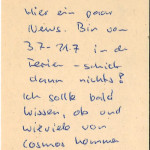 Hier ein paar
News. Bin vom
3.7-31.7 in de
Ferien - schick
dann nichts!
Ich sollte bald
wissen, ob und
wieviel von
cosmos kommen